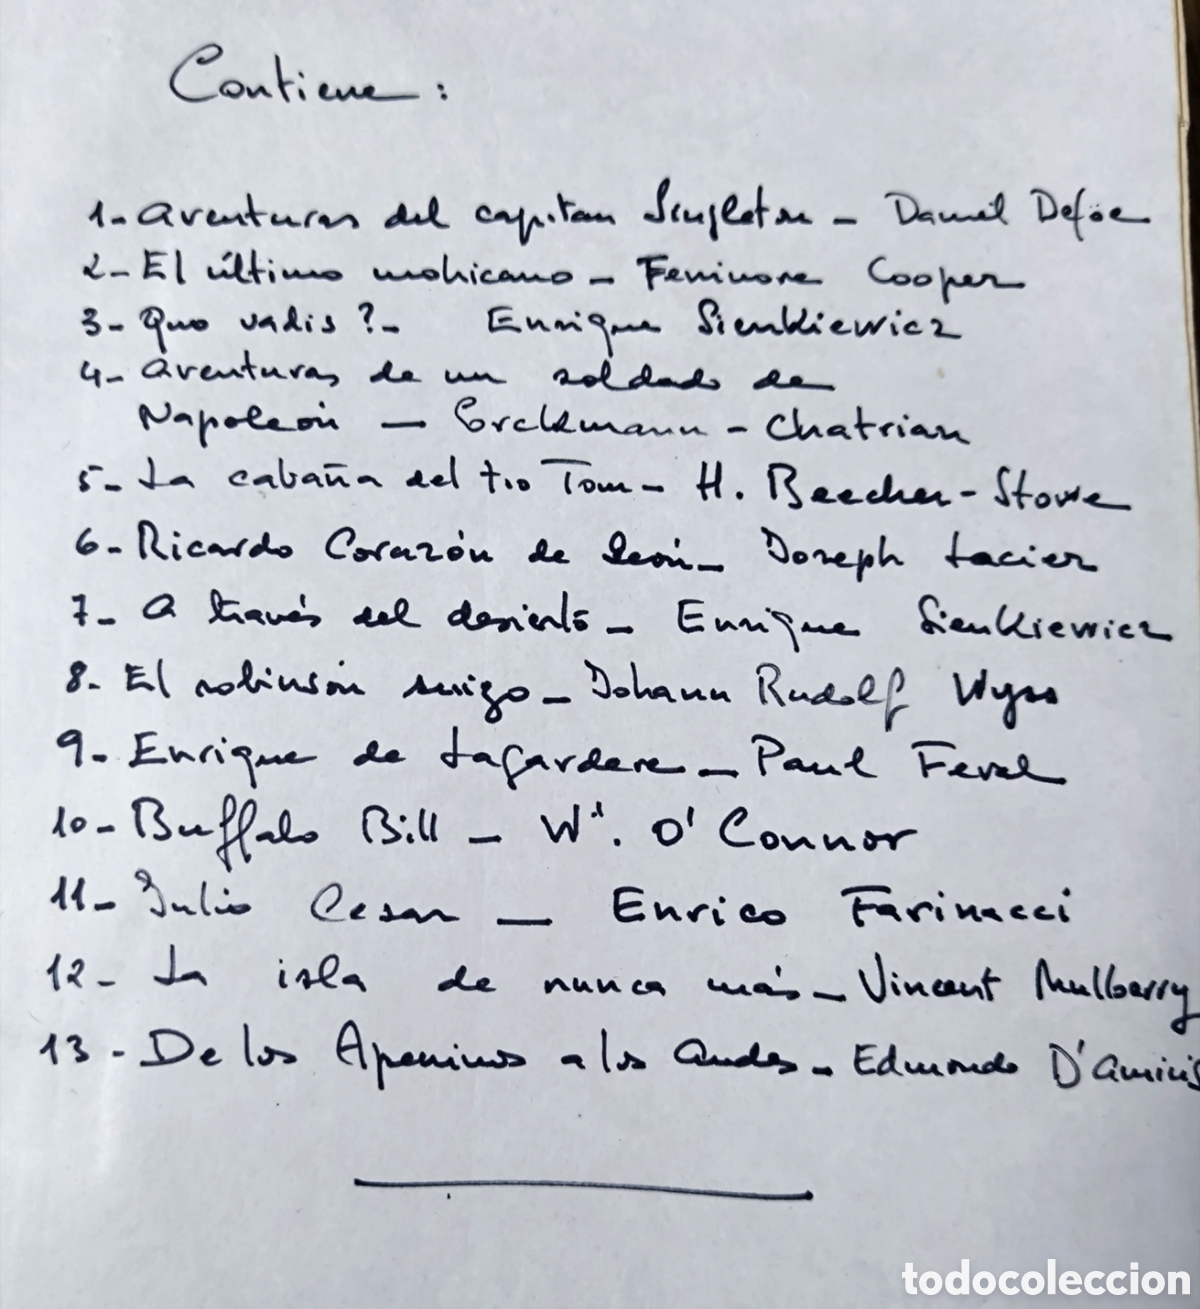 Contiene:
1- Aventuras del capitan Singleton - Daniel Defoe
2- El último mohicano - Fenimore Cooper
3- Quo vadis? - Enrique Sienkiewicz
4- Aventuras de un soldado de
Napoleón - Erckmann - Chatrian
5- La cabaña del tio Tom - H. Beecher - Stowe
6- Ricardo Corazón de León - Joseph Lacier
7- A través del desierto - Enrique Sienkiewicz
8- El robinsón suizo - Johann Rudolf Wyss
9- Enrique de Lagardere - Paul Feval
10- Buffalo Bill - W. O'Connor
11- Julio Cesar - Enrico Farinacci
12- La isla de nunca más - Vincent Mulberry
13- De los Apeninos a los Andes - Edmondo D'Amicis
todocoleccion